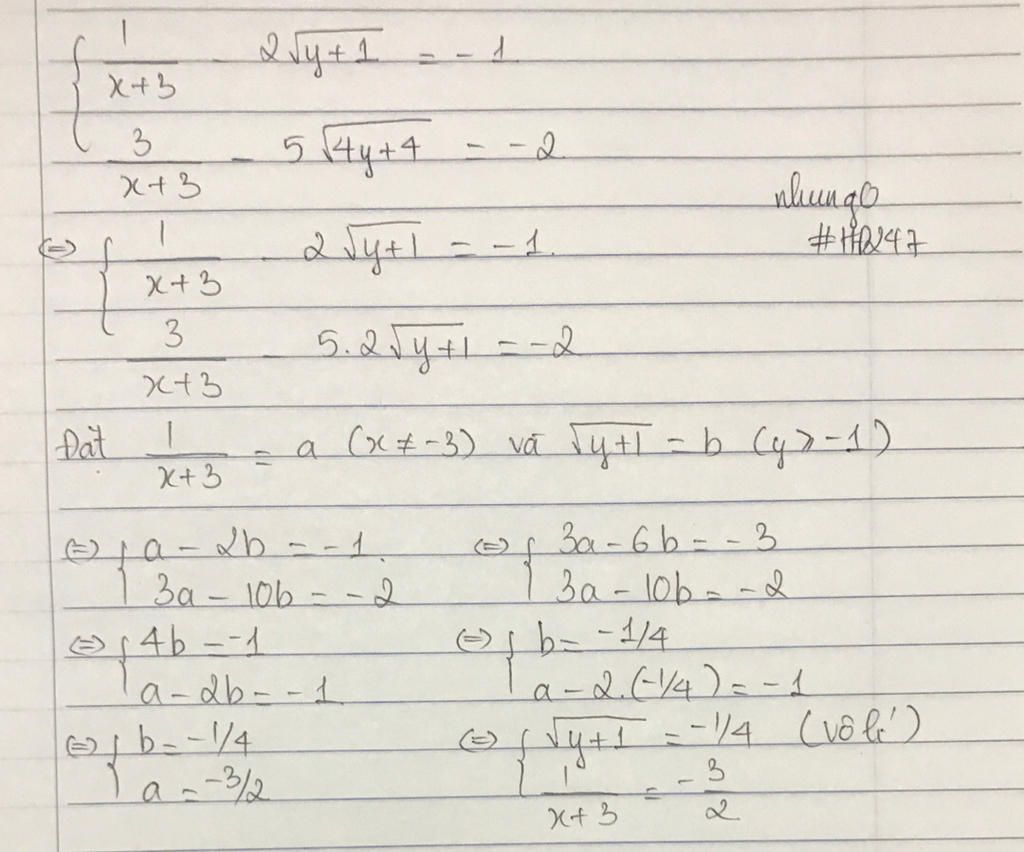 { 1/(x+3) - 2√(y+1) = -1
3/(x+3) - 5√(4y+4) = -2
nhung0
#HB247
⇔ { 1/(x+3) - 2√(y+1) = -1.
3/(x+3) - 5.2√(y+1) = -2
Đặt 1/(x+3) = a (x ≠ -3) và √(y+1) = b (y ≥ -1)
⇔ { a - 2b = -1. ⇔ { 3a - 6b = -3
3a - 10b = -2 3a - 10b = -2
⇔ { 4b = -1 ⇔ { b = -1/4
a - 2b = -1 a - 2.(-1/4) = -1
⇔ { b = -1/4 ⇔ { √(y+1) = -1/4 (vô lí)
a = -3/2 1/(x+3) = -3/2